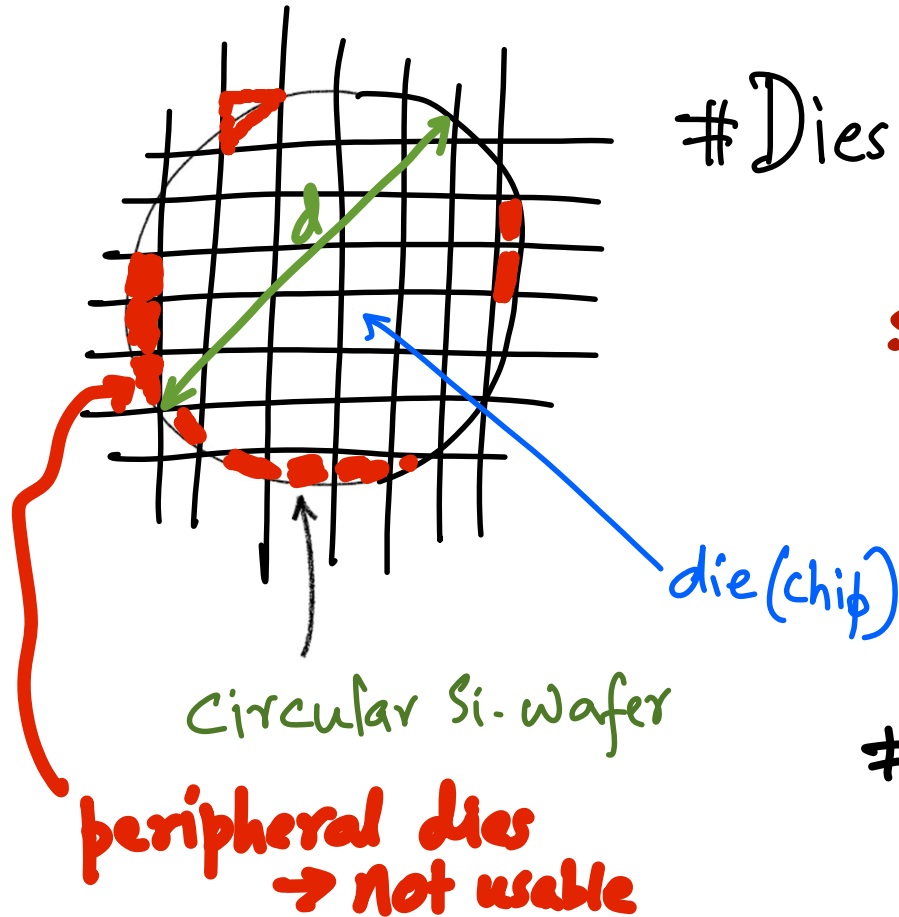 #Dies
d
die (chip)
circular Si-wafer
#
peripheral dies
→ not usable